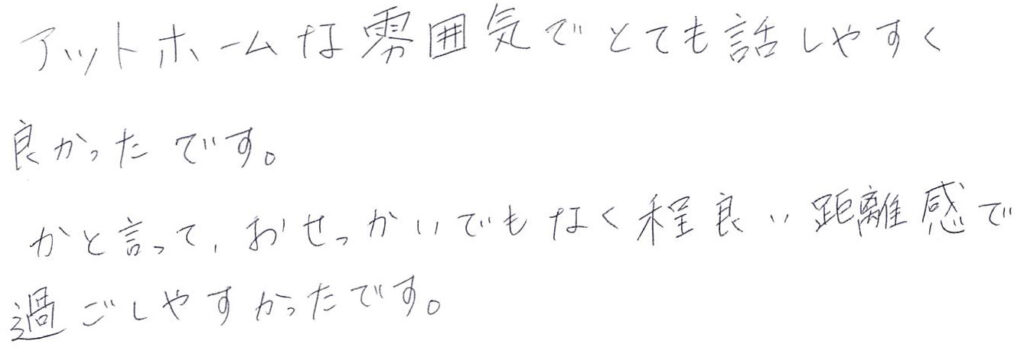 アットホームな雰囲気でとても話しやすく
良かったです。
かと言って、おせっかいでもなく程良い距離感で
過ごしやすかったです。